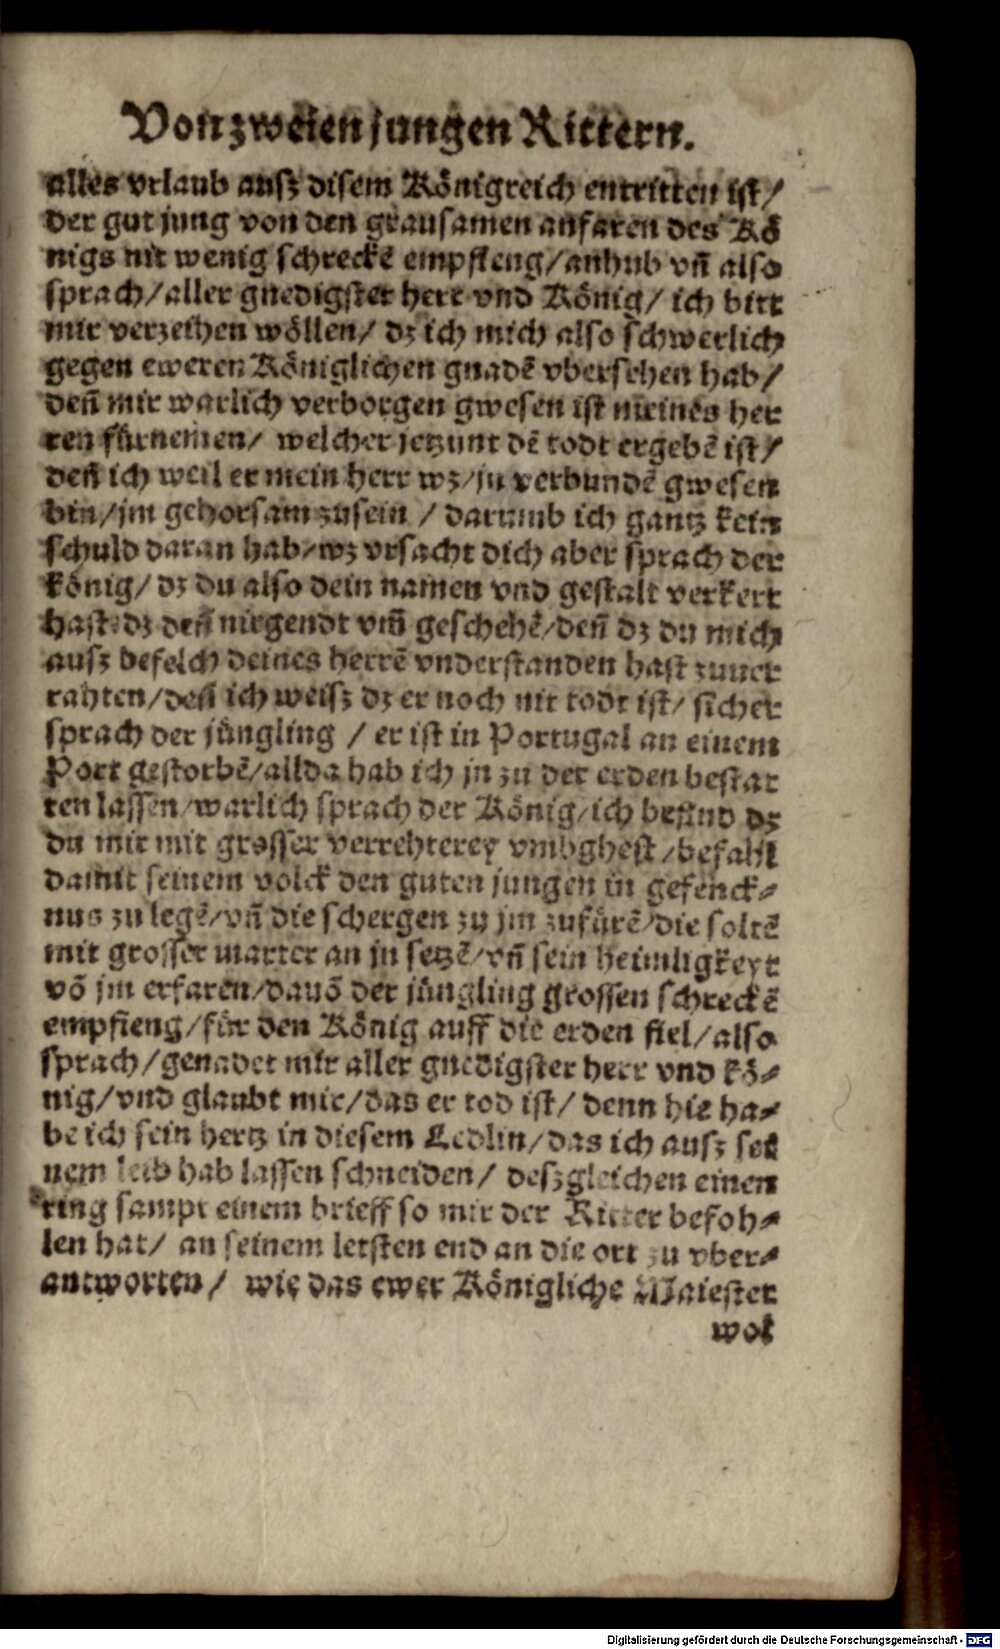 Von zweien jungen Rittern.
alles vrlaub ausz disem Königreich entritten ist/
der gut jung von den grausamen anfaren des Kö
nigs nit wenig schreckẽ empfieng/anhub vñ also
sprach/aller gnedigster herr vnd König/ ich bitt
mir verzeihen wöllen/ dz ich mich also schwerlich
gegen eweren Königlichen gnadẽ vbersehen hab/
deñ mir warlich verborgen gwesen ist meines her
ren fürnemen/ welcher jetzunt dẽ todt ergebẽ ist/
deñ ich weil er mein herr wz/jm verbundẽ gwesen
bin/jm gehorsam zusein / darumb ich gantz kein
schuld daran hab/wz vrsacht dich aber sprach der
könig/ dz du also dein namen vnd gestalt verkert
hast/dz deñ nirgendt vm̃ geschehẽ/deñ dz du mich
ausz befelch deines herrẽ vnderstanden hast zuuer
rahten/deñ ich weisz dz er noch nit todt ist/ sicher
sprach der jüngling / er ist in Portugal an einem
Port gestorbẽ/allda hab ich jn zu der erden bestat
ten lassen/warlich sprach der König/ich befind dz
du mir mit grosser verrehterey vmbghest/befahl
damit seinem volck den guten jungen in gefenck-
nus zu legẽ/vñ die schergen zu jm zufürẽ/die soltẽ
mit grosser marter an jn setzẽ/vñ sein heimligkeyt
võ jm erfaren/dauõ der jüngling grossen schreckẽ
empfieng/für den König auff die erden fiel/also
sprach/genadet mir aller gnedigster herr vnd kö-
nig/vnd glaubt mir/das er tod ist/ denn hie ha-
be ich sein hertz in diesem Ledlin/das ich ausz sei
nem leib hab lassen schneiden/ deszgleichen einen
ring sampt einem brieff so mir der Ritter befoh-
len hat/ an seinem letsten end an die ort zu vber-
antworten/ wie das ewer Königliche Maiestet
wol
Digitalisierung gefördert durch die Deutsche Forschungsgemeinschaft - DFG